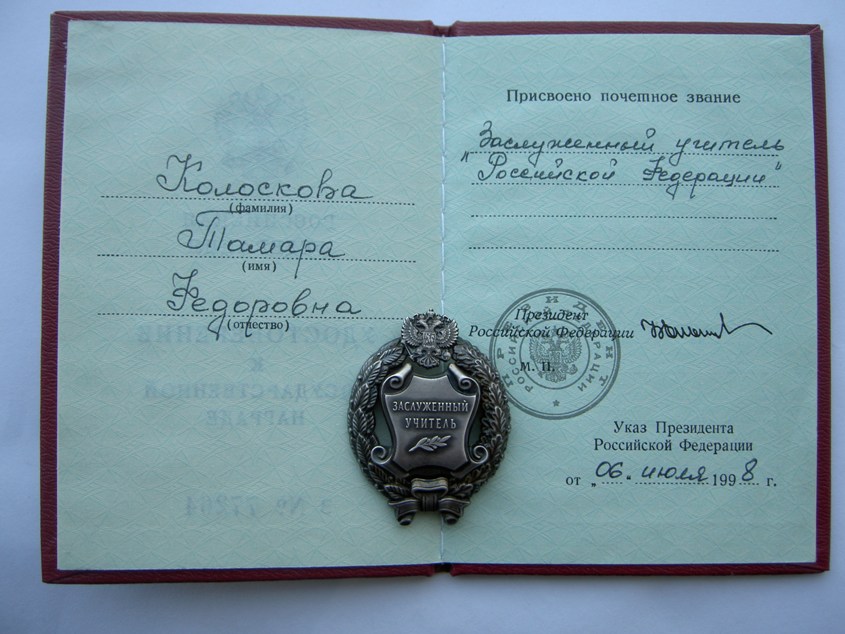 Колоскова
(фамилия)
Тамара
(имя)
Федоровна
(отчество)
ЗАСЛУЖЕННЫЙ
УЧИТЕЛЬ
Присвоено почетное звание
Заслуженный учитель
"Российской Федерации"
Президент
Российской Федерации
М. П.
ПРЕЗИДЕНТ
РОССИЙСКОЙ ФЕДЕРАЦИИ
Указ Президента
Российской Федерации
от „06“ июля 1998 г.